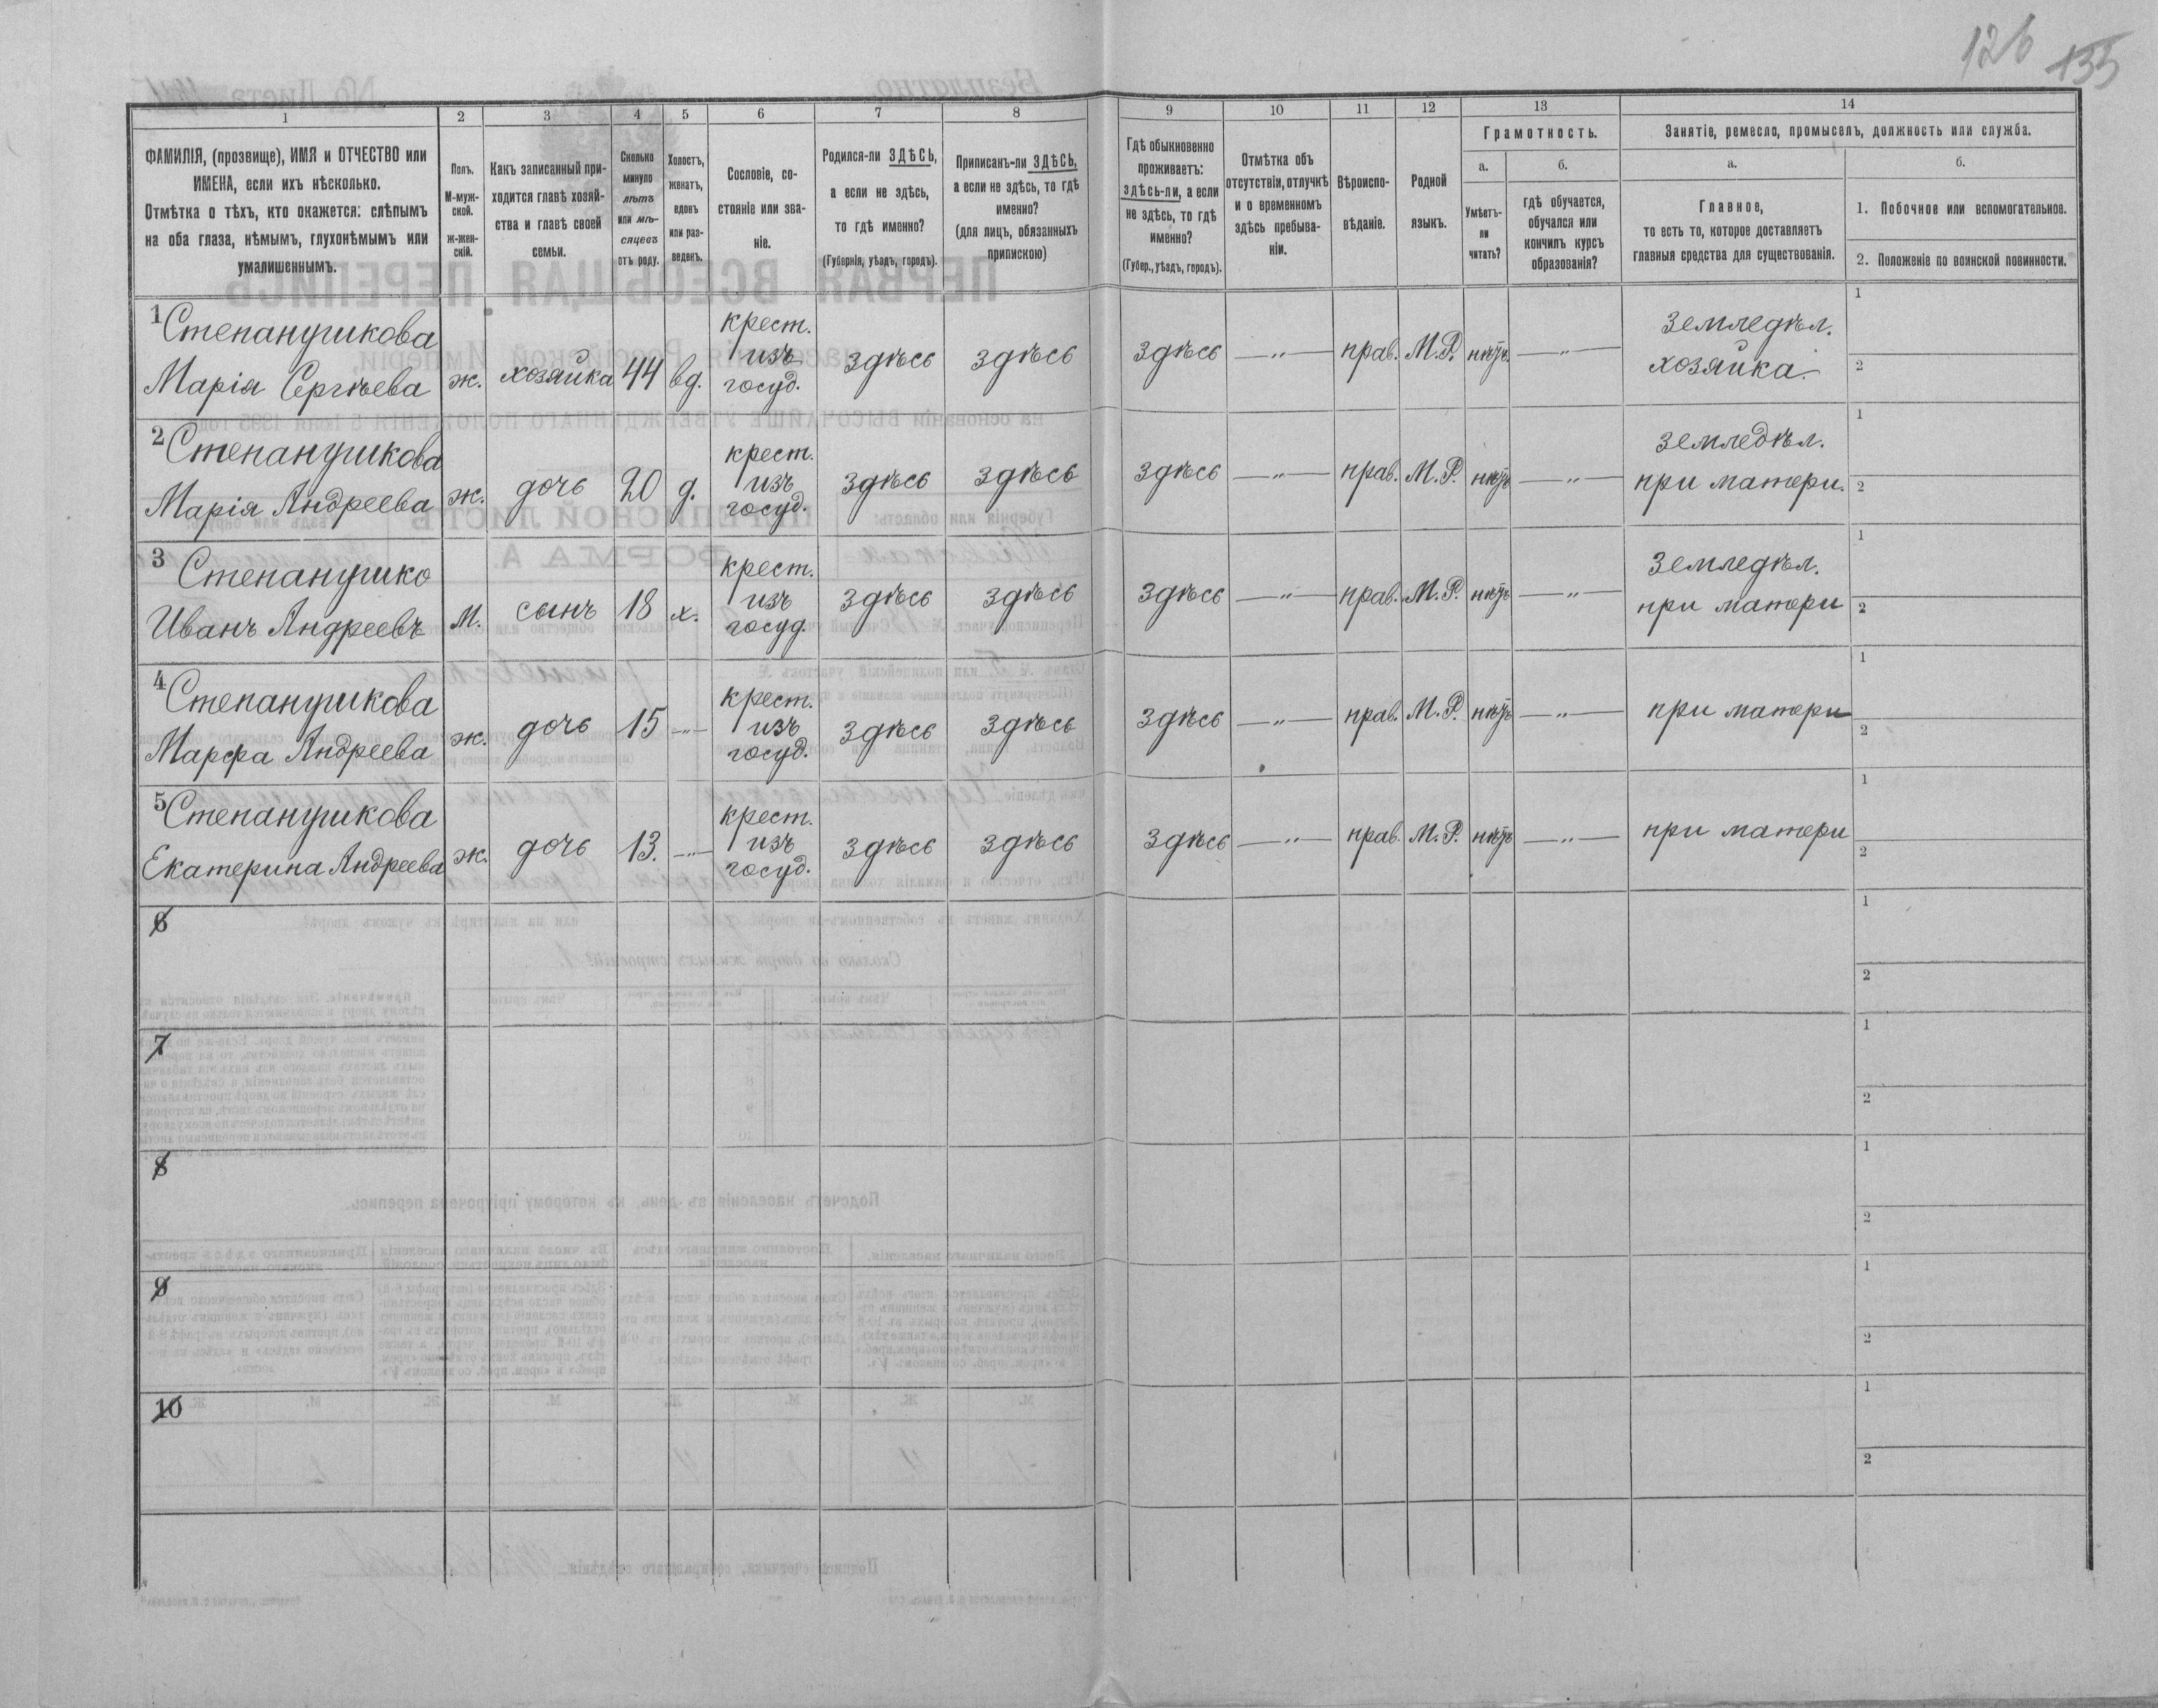 126 135
1 2 3 4 5 6 7 8 9 10 11 12 13 14
ФАМИЛІЯ, (прозвище), ИМЯ и ОТЧЕСТВО или
ИМЕНА, если ихъ нѣсколько.
Отмѣтка о тѣхъ, кто окажется: слѣпымъ
на оба глаза, нѣмымъ, глухонѣмымъ или
умалишеннымъ.
Полъ.
М-муж-
ской.
Ж-жен-
скій.
Какъ записанный при-
ходится главѣ хозяй-
ства и главѣ своей
семьи.
Сколько
минуло
лѣтъ
или мѣ-
сяцевъ
отъ роду.
Холостъ,
женатъ,
вдовъ
или раз-
веденъ.
Сословіе, со-
стояніе или зва-
ніе.
Родился-ли ЗДѢСЬ,
а если не здѣсь,
то гдѣ именно?
(Губернія, уѣздъ, городъ).
Приписанъ-ли ЗДѢСЬ,
а если не здѣсь, то гдѣ
именно?
(для лицъ, обязанныхъ
припискою)
Гдѣ обыкновенно
проживаетъ:
здѣсь-ли, а если
не здѣсь, то гдѣ
именно?
(Губер., уѣздъ, городъ).
Отмѣтка объ
отсутствіи, отлучкѣ
и о временномъ
здѣсь пребыва-
ніи.
Вѣроиспо-
вѣданіе.
Родной
языкъ.
Грамотность.
а.
Умѣетъ-
ли
читать?
б.
гдѣ обучается,
обучался или
кончилъ курсъ
образованія?
Занятіе, ремесло, промыселъ, должность или служба.
а.
Главное,
то есть то, которое доставляетъ
главныя средства для существованія.
б.
1. Побочное или вспомогательное.
2. Положеніе по воинской повинности.
1 Степанушкова
Марія Сергѣева
ж. хозяйка 44 вд.
крест.
изъ
госуд.
здѣсь здѣсь здѣсь —〃— прав. М.Р. нѣтъ —〃—
земледѣл.
хозяйка.
1
2
2 Степанушкова
Марія Андреева
ж. дочь 20 д.
крест.
изъ
госуд.
здѣсь здѣсь здѣсь —〃— прав. М.Р. нѣтъ —〃—
земледѣл.
при матери.
1
2
3 Степанушко
Иванъ Андреевъ
м. сынъ 18 х.
крест.
изъ
госуд.
здѣсь здѣсь здѣсь —〃— прав. М.Р. нѣтъ —〃—
земледѣл.
при матери
1
2
4 Степанушкова
Марфа Андреева
ж. дочь 15 —〃—
крест.
изъ
госуд.
здѣсь здѣсь здѣсь —〃— прав. М.Р. нѣтъ —〃—
при матери
1
2
5 Степанушкова
Екатерина Андреева
ж. дочь 13. —〃—
крест.
изъ
госуд.
здѣсь здѣсь здѣсь —〃— прав. М.Р. нѣтъ —〃—
при матери
1
2
6
1
2
7
1
2
8
1
2
9
1
2
10
1
2